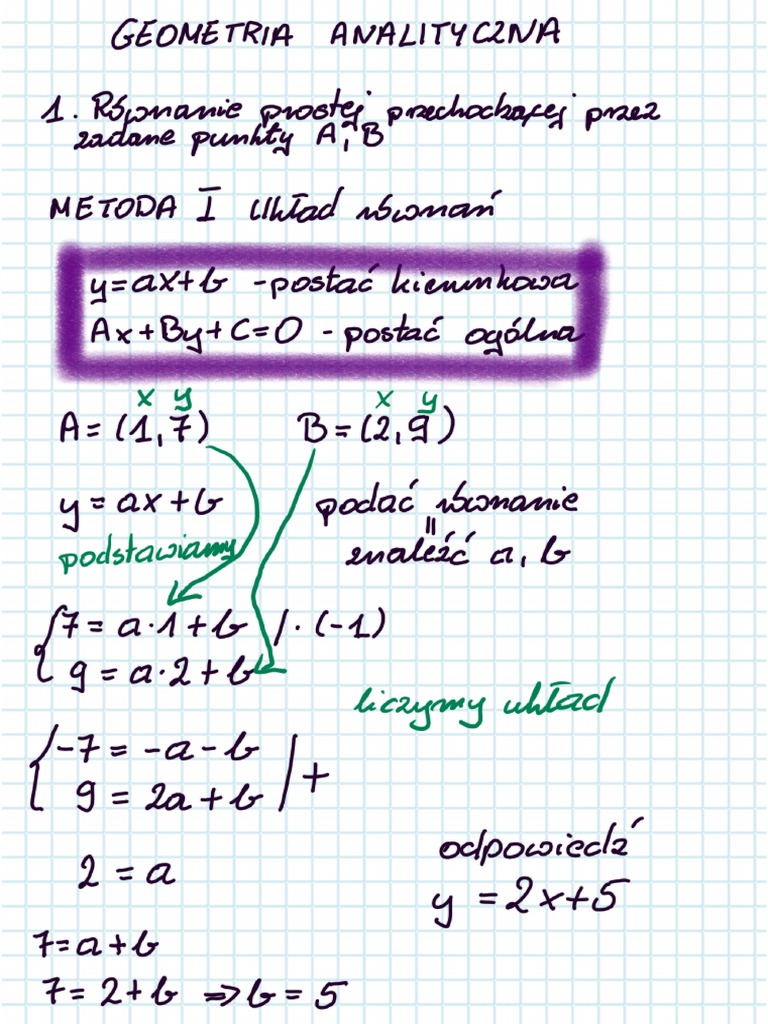 GEOMETRIA ANALITYCZNA
1. Równanie prostej przechodzącej przez
zadane punkty A, B
METODA I Układ równań
y=ax+b - postać kierunkowa
Ax+By+C=0 - postać ogólna
x y x y
A=(1,7) B=(2,9)
y=ax+b podać równanie
podstawiamy = znaleźć a, b
7=a·1+b /·(-1)
9=a·2+b
liczymy układ
-7=-a-b
9=2a+b /+
2=a
odpowiedź
y=2x+5
7=a+b
7=2+b ⇒ b=5